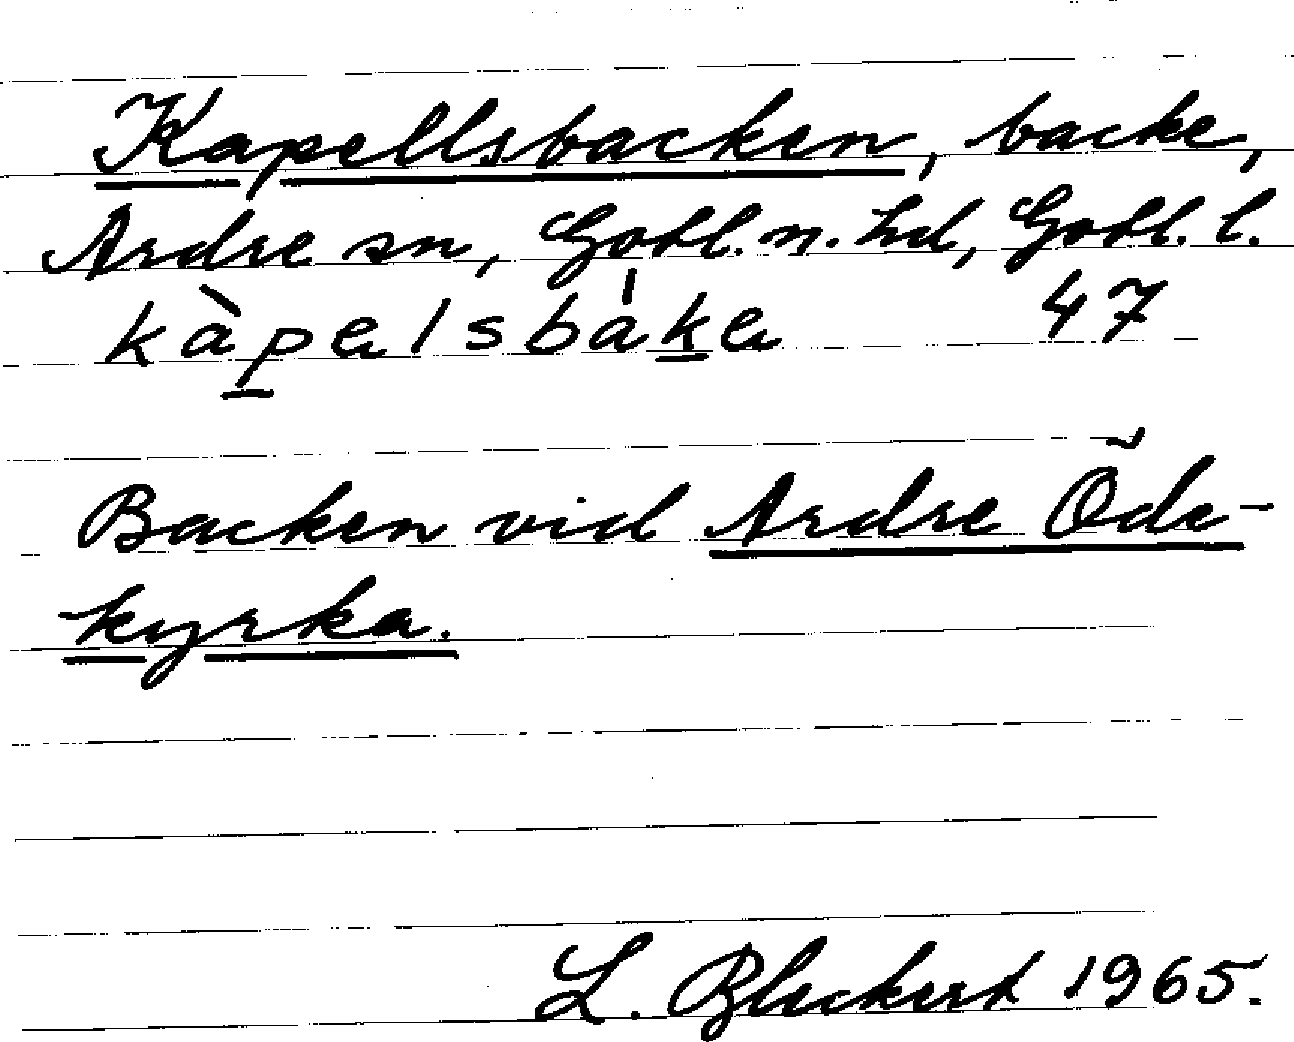 Kapellsbacken, backe,
Ardre sn, Gotl. n. hd, Gotl. l.
kàpelsbàka 47
Backen vid Ardre Öde-
kyrka.
L. Bleckert 1965.